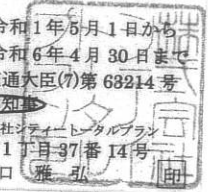 令和1年5月1日から
令和6年4月30日まで
通大臣(7)第 63214 号
知事
社シティートータルプラン
1丁目37番14号
口 雅 弘 印